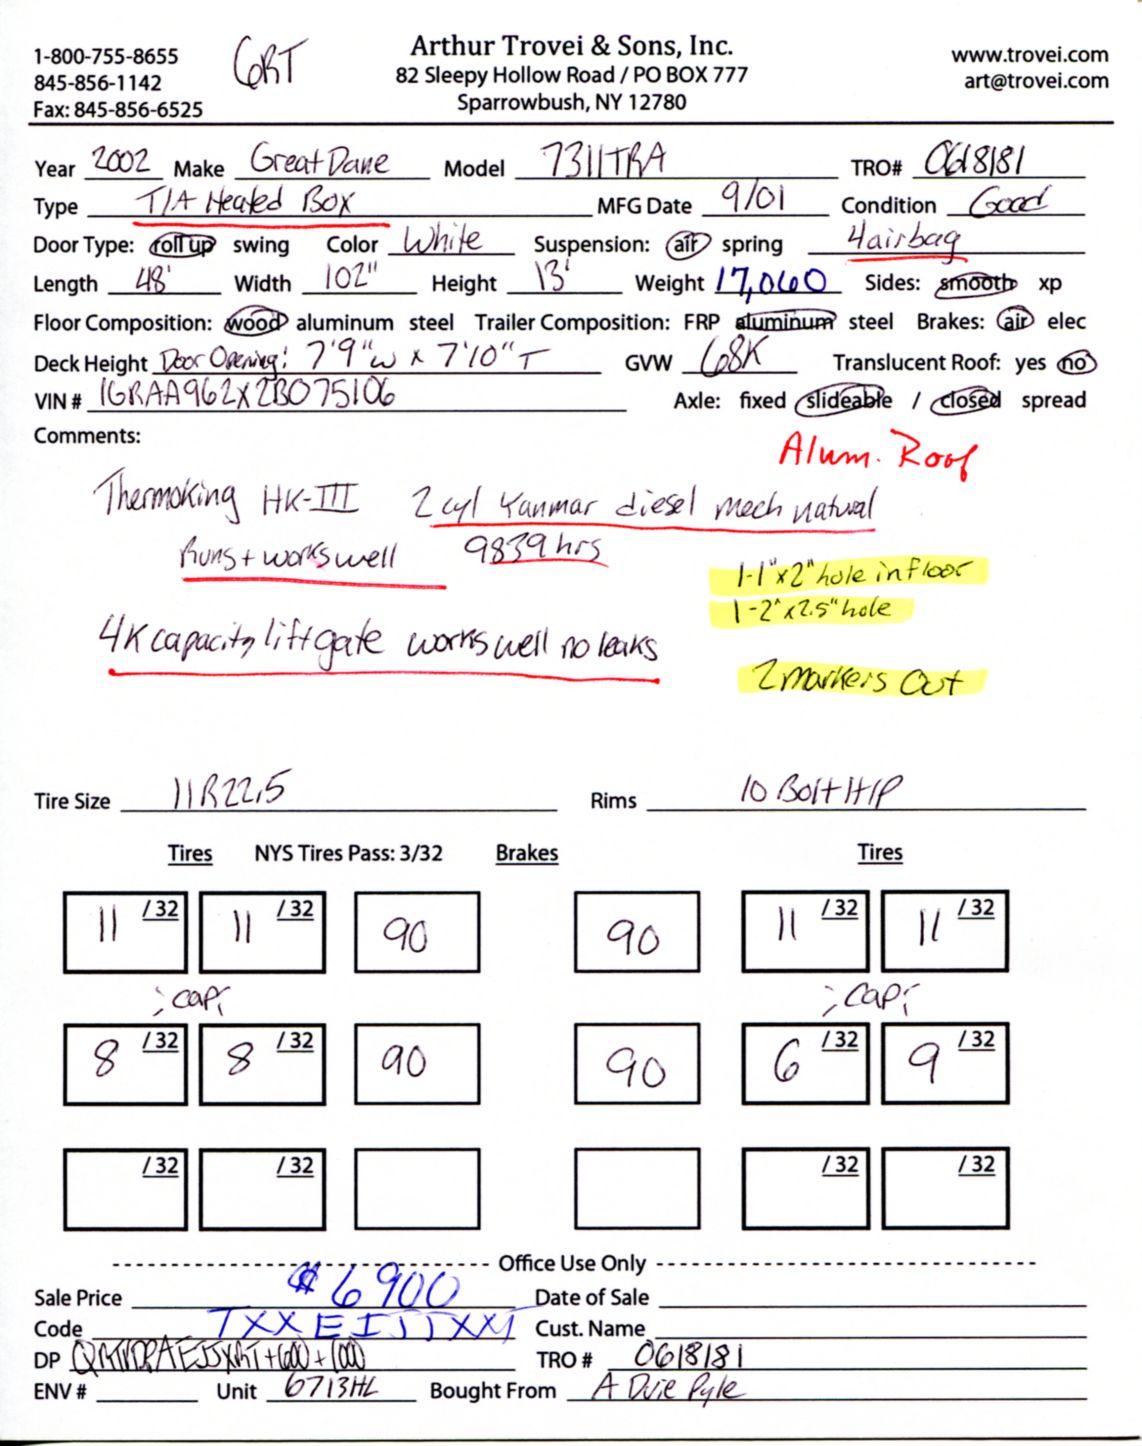 1-800-755-8655
845-856-1142
Fax: 845-856-6525
GRT
Arthur Trovei & Sons, Inc.
82 Sleepy Hollow Road / PO BOX 777
Sparrowbush, NY 12780
www.trovei.com
art@trovei.com
Year 2002 Make Great Dane Model 7311TRA TRO# 0618181
Type T/A Heated Box MFG Date 9/01 Condition Good
Door Type: roll up swing Color White Suspension: air spring 4 airbag
Length 48' Width 102" Height 13' Weight 17,060 Sides: smooth xp
Floor Composition: wood aluminum steel Trailer Composition: FRP aluminum steel Brakes: air elec
Deck Height Door Opening: 7'9"w x 7'10"T GVW 68K Translucent Roof: yes no
VIN # 1GRAA962X2B075106 Axle: fixed slideable / closed spread
Comments:
Alum. Roof
Thermoking HK-III 2 cyl Yanmar diesel mech natural
Runs + works well 9839 hrs
1-1"x2" hole in floor
1-2"x2.5" hole
4K capacity liftgate works well no leaks
2 markers out
Tire Size 11R22.5 Rims 10 Bolt H/P
Tires NYS Tires Pass: 3/32 Brakes Tires
11 /32 11 /32 90 90 11 /32 11 /32
; cap; ; cap;
8 /32 8 /32 90 90 6 /32 9 /32
/32 /32 /32 /32
Office Use Only
Sale Price $6900 Date of Sale
Code Cust. Name
DP +600 +1000 TRO # 0618181
ENV # Unit 6713HL Bought From A Duie Pyle